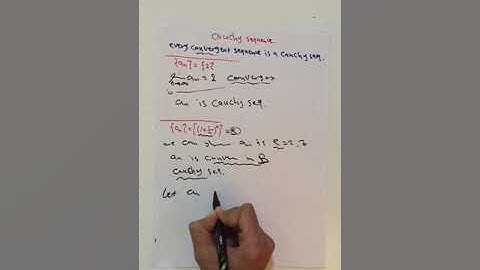 Cauchy sequence
every convergent sequence is a Cauchy seq.
{an} = {2}
an = 2 converges
an is Cauchy seq.
we can show an is e = 2.7
an is conver in
Cauchy seq.
Let an